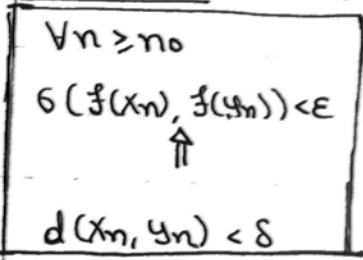 ∀n ≥ n₀
σ(f(xₙ), f(yₙ)) < ε
⇑
d(xₙ, yₙ) < δ